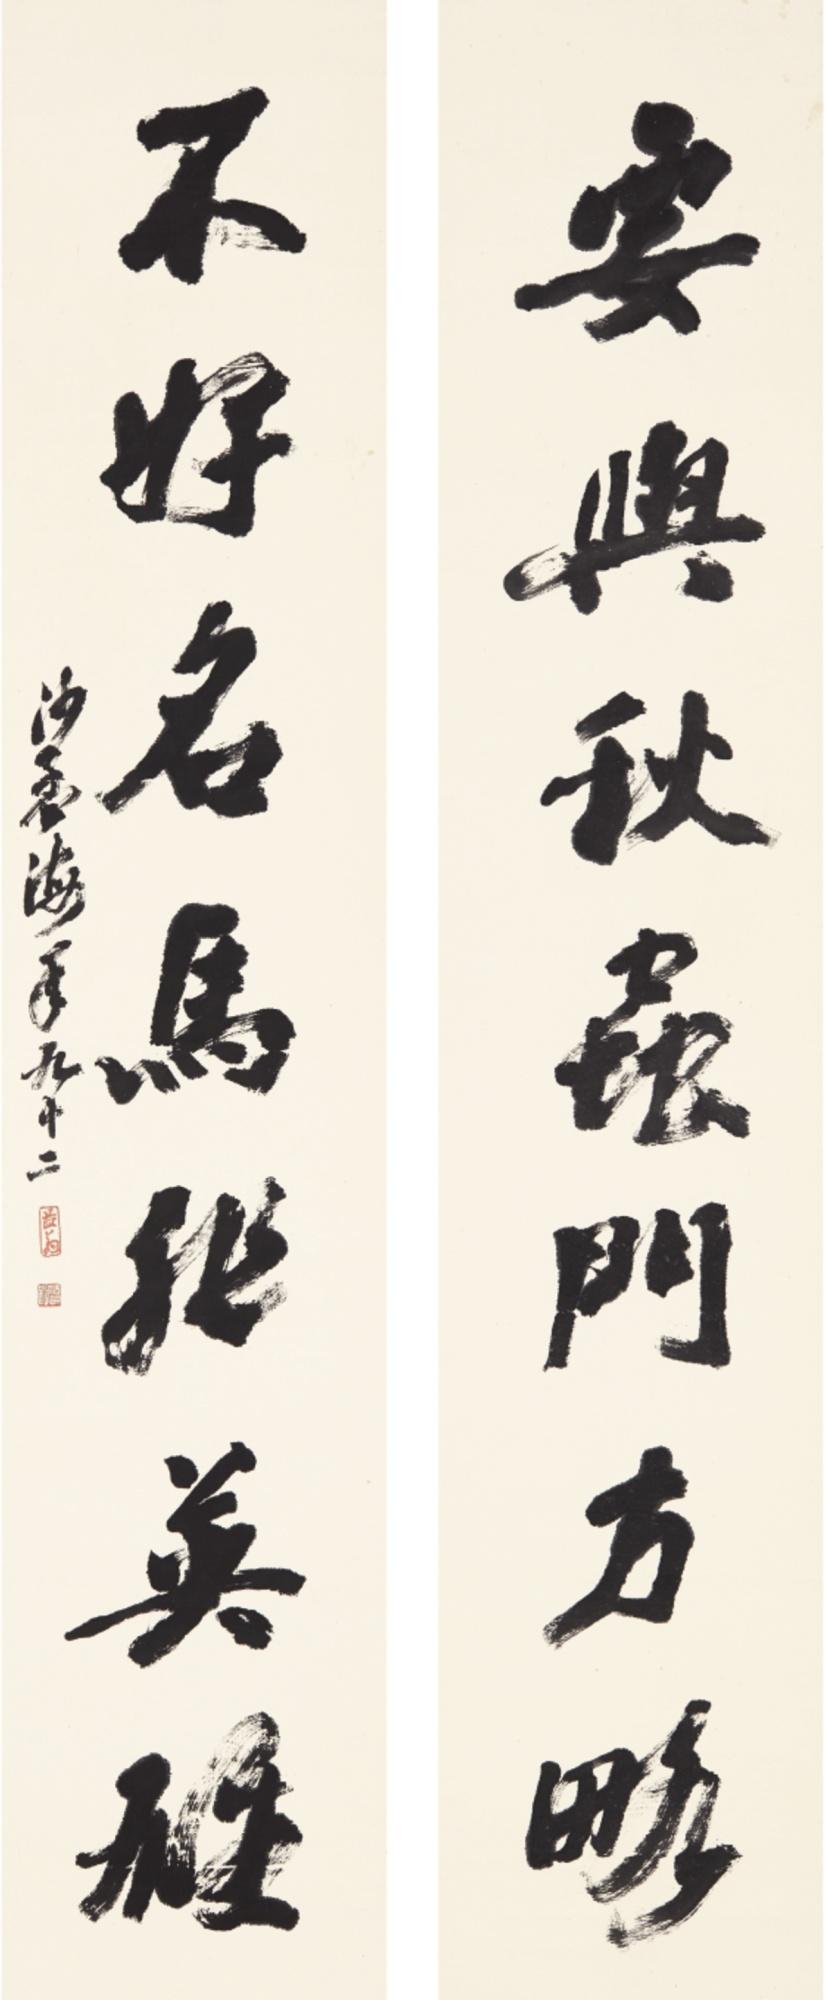 要與秋蟲鬥方略
不好名馬非英雄
沙孟海年九十二